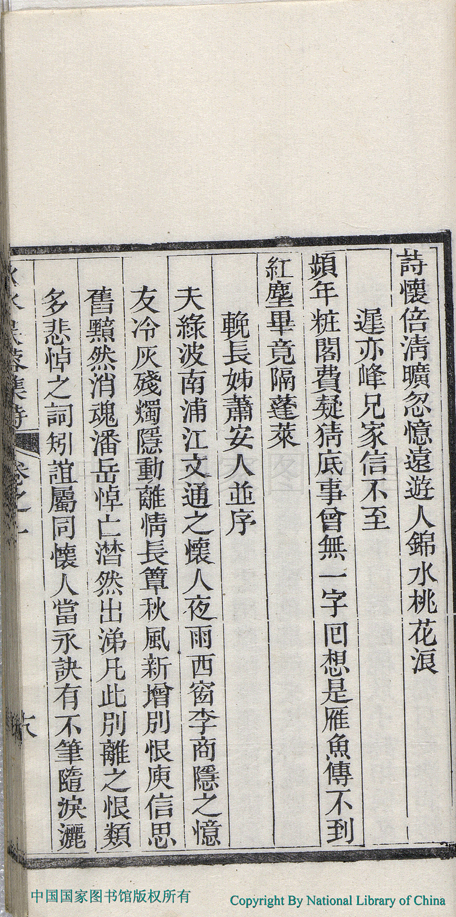 詩懷倍淸曠忽憶遠遊人錦水桃花浪
遲亦峰兄家信不至
頻年粧閣費疑猜底事曾無一字囘想是雁魚傳不到
紅塵畢竟隔蓬萊
輓長姊蕭安人並序
夫綠波南浦江文通之懷人夜雨西窗李商隱之憶
友冷灰殘燭隱動離情長簟秋風新增別恨庾信思
舊黯然消魂潘岳悼亡潸然出涕凡此別離之恨類
多悲悼之詞矧誼屬同懷人當永訣有不筆隨淚灑
集詩 卷之一
中国国家图书馆版权所有
Copyright By National Library of China